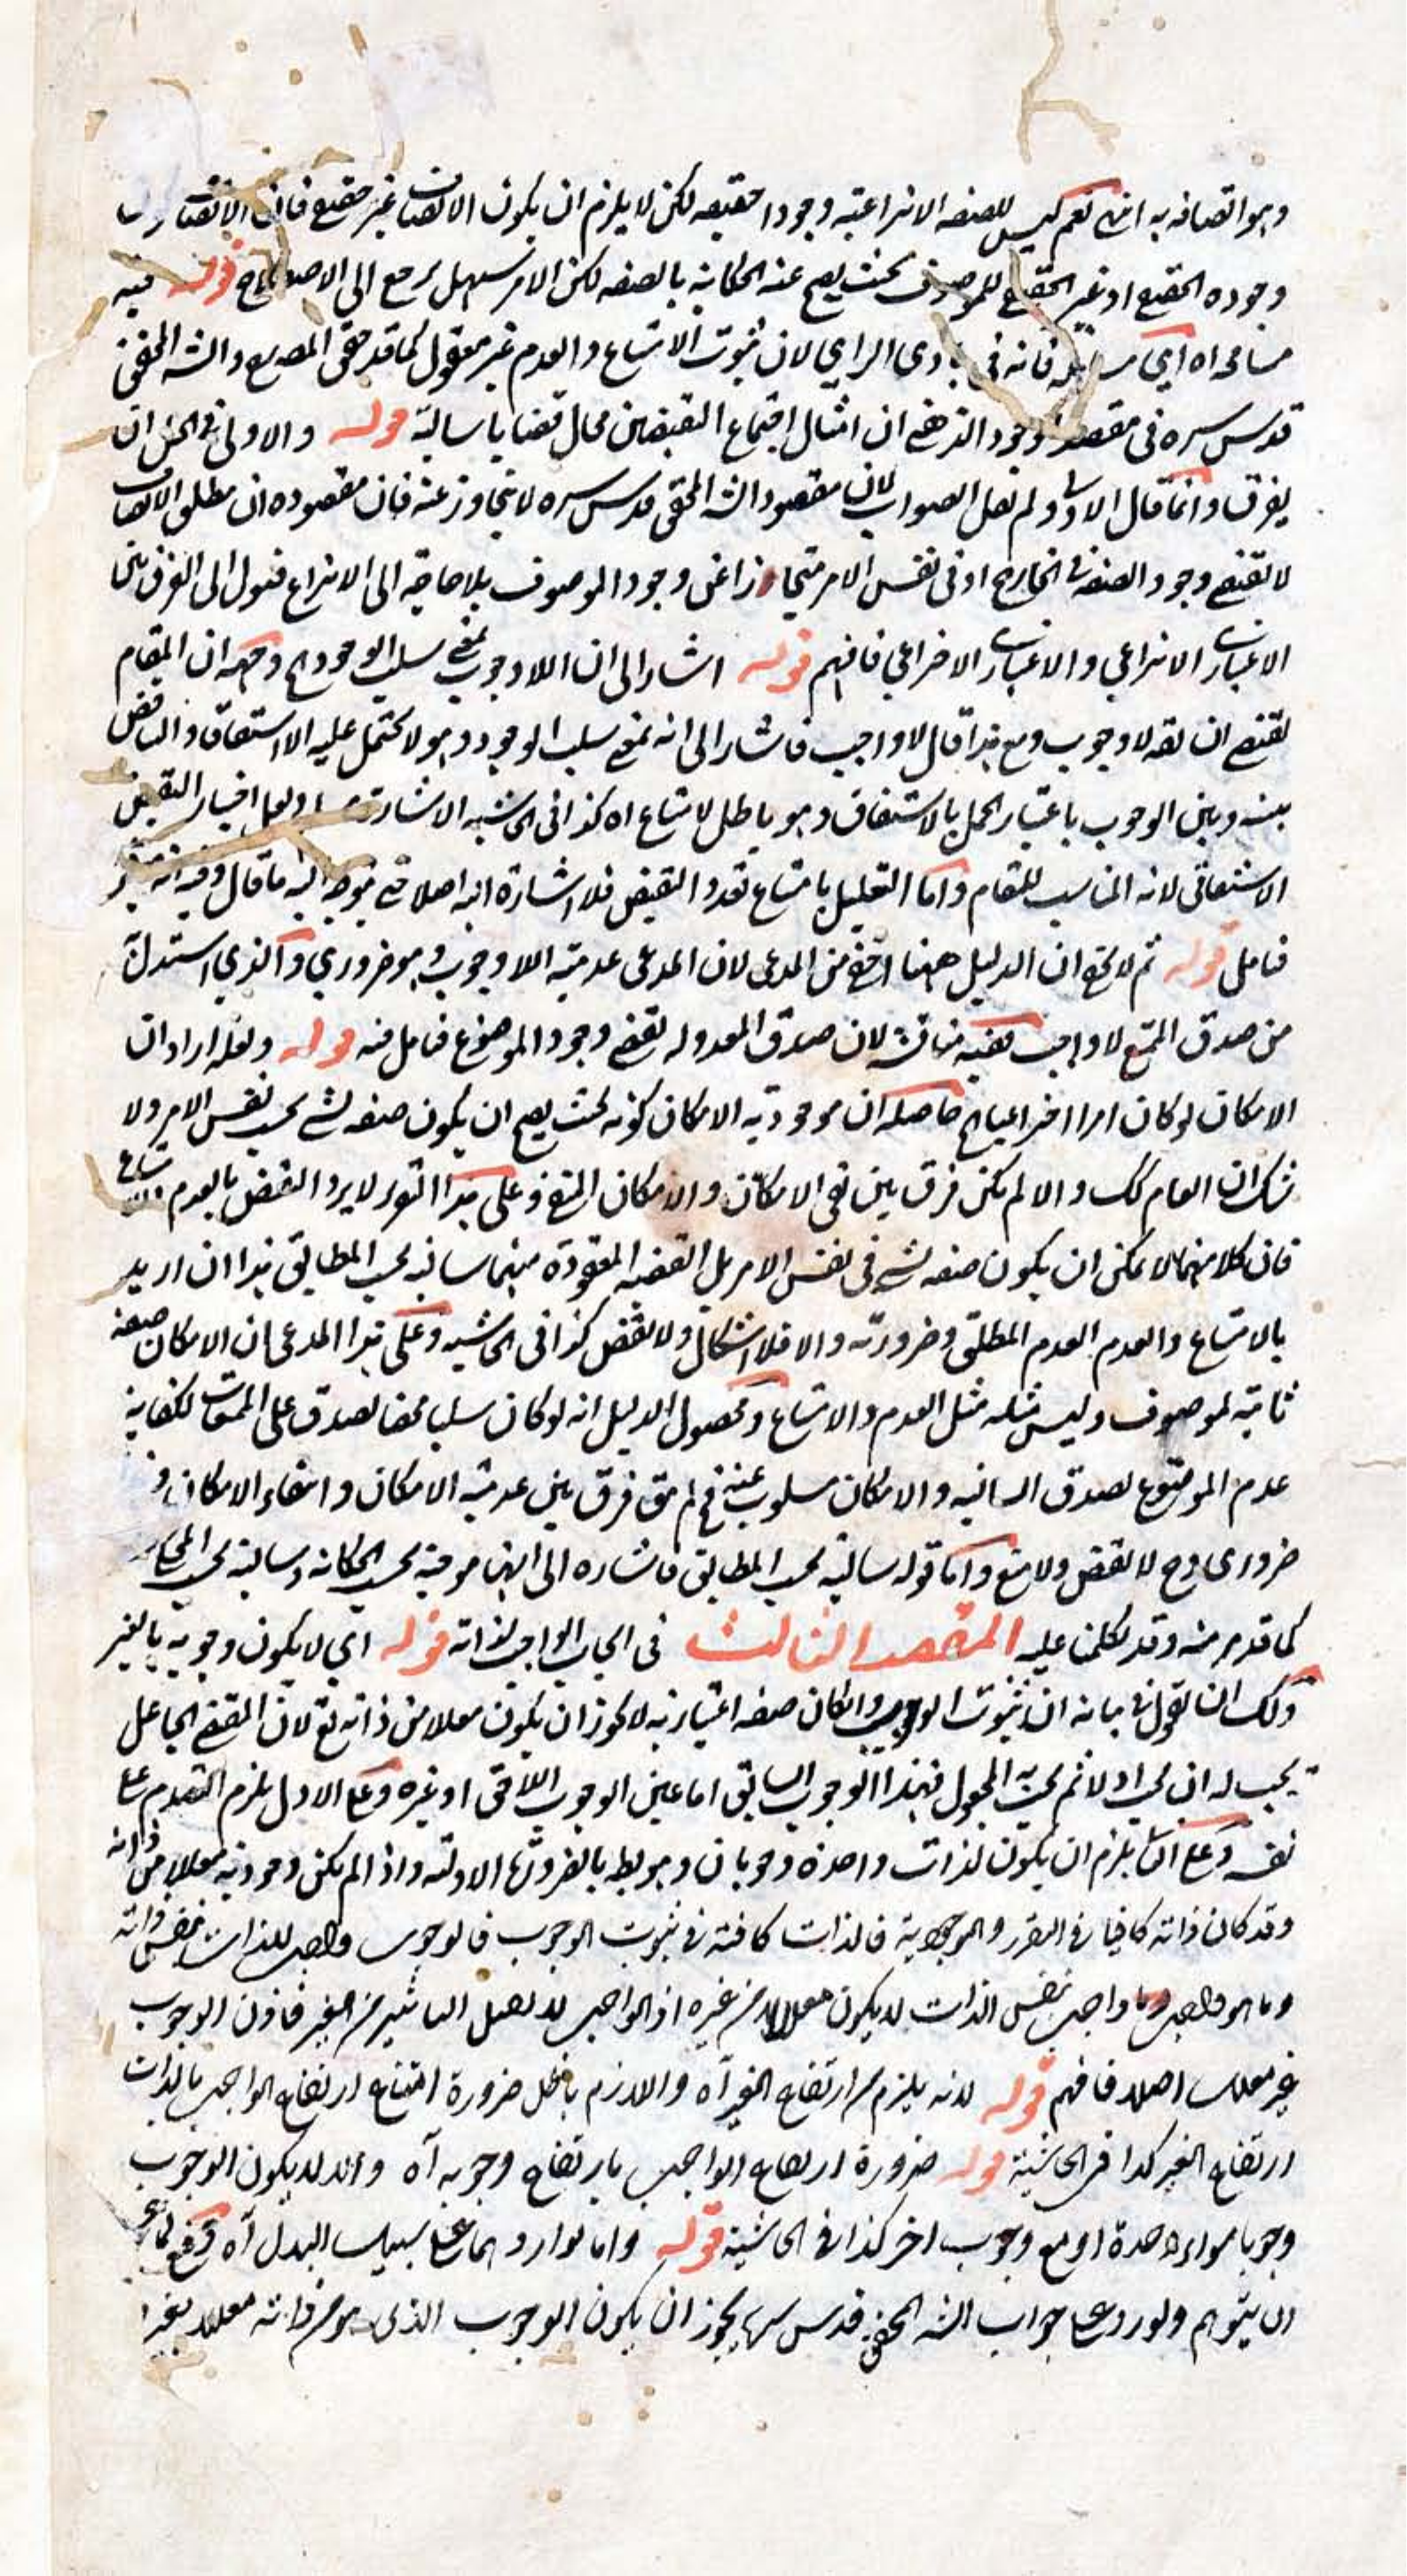 وهو اتصافه به انتهى نعم ليس للصفه الانتزاعية وجودا حقيقه لكن لا يلزم ان يكون الاتصاف غير حقيقي فان الاتصاف
وجوده الحقيقي او غير الحقيقي للموصوف بحيث يصح عنه الحكاية بالصفه لكن الامر سهل يرجع الى الاصطلاح قوله فيه
مسامحه اه اي مساهله فانه في بادى الراي لان ثبوت الامتناع والعدم غير معقول كما قد حقق المص مع والشه المحقق
قدس سره في مقصد الوجود الذهني ان امثال اجتماع النقيضين محال قضايا سالبة قوله والاولى في الحل ان
يفرق وانما قال الاولى ولم يقل الصواب لان مقصود الشه المحقق قدس سره لا يتجاوز عنه فان مقصوده ان مطلق الاتصاف
لا يقتضي وجود الصفه في الخارج او في نفس الامر متجاوزا عن وجود الموصوف بلا حاجة الى الانتزاع فيول الى الفرق بين
الاعتباري الانتزاعي والاعتباري الاختراعي فافهم قوله اشار الى ان اللاوجوب بمعنى سلب الوجود اه وجهه ان المقام
يقتضي ان يقه لاوجوب ومع هذا قال لاواجب فاشار الى انه بمعنى سلب الوجود وهو لا يحتمل عليه الاشتقاق والتناقض
بينه وبين الوجوب باعتبار الحمل بالاشتقاق وهو باطل لامتناع اه كذا في الحاشيه الاشارة ولعل اختيار النقيض
الاشتقاقي لانه المناسب للمقام واما التعليل بامتناع تعدد النقيض فلا اشارة اليه اصلا حتى يتوجه اليه ما قال وفيه انه
فتامل قوله ثم لا يخفى ان الدليل ههنا اخص من المدعى لان المدعى عدمية اللاوجوب وهو ضروري والذي استدل
من صدق الممتنع لاواجب ففيه مناقشه لان صدق المعدوله يقتضي وجود الموضوع فتامل فيه قوله ولعله اراد ان
الامكان لو كان امرا اختراعيا اه حاصله ان موجودية الامكان كونه بحيث يصح ان يكون صفه لشي بحسب نفس الامر ولا
شك ان العام كك والا لم يكن فرق بين نفي الامكان والامكان المنفي وعلى هذا التقرير لا يرد النقض بالعدم والامتناع
فان كلا منهما لا يمكن ان يكون صفه لشي في نفس الامر بل القضيه المعقودة منهما سالبه بحسب المطابق هذا ان اريد
بالامتناع والعدم العدم المطلق وضرورته والا فلا اشكال ولا نقض كذا في الحاشيه وعلى هذا المدعى ان الامكان صفه
ثابتة لموصوف وليس مثله مثل العدم والامتناع ومحصول الدليل انه لو كان سلبا محضا لصدق على الممتنعات لكفاية
عدم الموضوع لصدق السالبه والامكان مسلوب عنه فح لم يبق فرق بين عدمية الامكان وانتفاء الامكان وهو
ضروري وح لا نقض ولا منع واما قوله سالبة بحسب المطابق فاشاره الى انها موجبة بحسب الحكاية وسالبة بحسب المحكي
كما قد مر منه وقد تكلمنا عليه المقصد الثالث في ابحاث الواجب لذاته قوله اي لا يكون وجوبه بالغير
ولك ان تقول في بيانه ان ثبوت الوجوب وان كان صفه اعتبارية لا يجوز ان يكون معللا من ذاته تع لان المقتضي الجاعل
يجب له ان يجب اولا ثم يجب به المجعول فهذا الوجوب السابق اما عين الوجوب اللاحق او غيره وعلى الاول يلزم التقدم على
نفسه وعلى الثاني يلزم ان يكون لذات واحدة وجوبان وهو بط بالضرورة الاولية واذا لم يكن وجوديه معللا من ذاته
وقد كان ذاته كافيا في التقرر والموجودية فالذات كافية في ثبوت الوجوب فالوجوب واجب للذات بنفس ذاته
وما هو واجب وما واجب بنفس الذات لا يكون معللا من غيره اذ الواجب لا يقبل التاثير من الغير فاذن الوجوب
غير معلل اصلا فافهم قوله لانه يلزم من ارتفاع الغير آه واللازم باطل ضرورة امتناع ارتفاع الواجب بالذات
ارتفاع الغير كذا في الحاشية قوله ضرورة ارتفاع الواجب بارتفاع وجوبه آه والا لا يكون الوجوب
وجوبا سواء وحدة او مع وجوب اخر كذا في الحاشية قوله واما تواردهما على سبيل البدل آه دفع لما عسى
ان يتوهم ولورد على جواب الشه المحقق قدس سره يجوز ان يكون الوجوب الذي هو من ذاته معللا بغيره